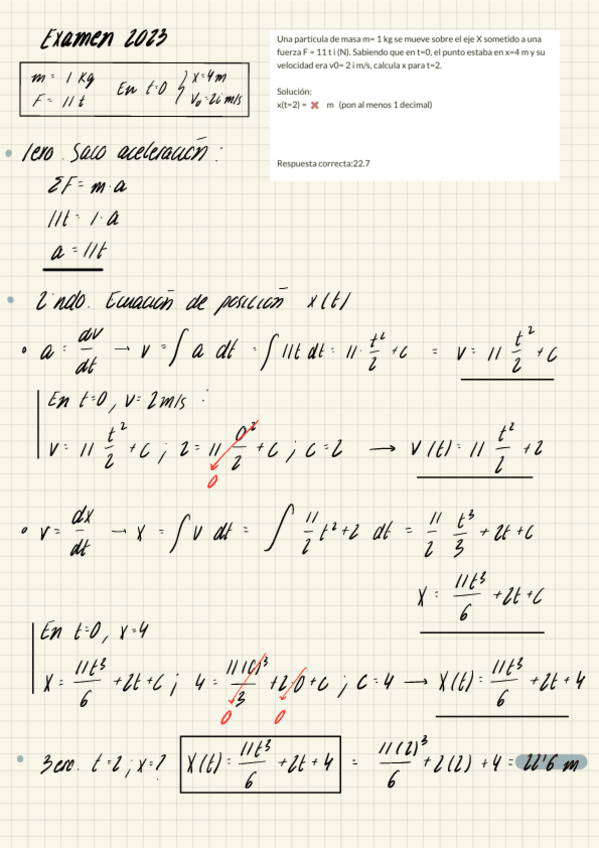 Examen 2023
Una partícula de masa m= 1 kg se mueve sobre el eje X sometido a una
fuerza F = 11 t i (N). Sabiendo que en t=0, el punto estaba en x=4 m y su
velocidad era v0= 2 i m/s, calcula x para t=2.
Solución:
x(t=2) = ✖ m (pon al menos 1 decimal)
Respuesta correcta:22.7
m = 1 kg
F = 11 t
En t=0 { x=4m
V₀=2i m/s
1ero. Saco aceleración:
ΣF = m·a
11t = 1·a
a = 11t
2ndo. Ecuación de posición x(t)
a = dv/dt → v = ∫ a dt = ∫ 11t dt = 11· t²/2 + c = v = 11 t²/2 + c
En t=0, v= 2m/s :
v = 11 t²/2 + c ; 2 = 11 0²/2 + c ; c = 2 → v(t) = 11 t²/2 + 2
0
v = dx/dt → x = ∫ v dt = ∫ 11/2 t² + 2 dt = 11/2 t³/3 + 2t + c
x = 11t³/6 + 2t + c
En t=0, x=4
x = 11t³/6 + 2t + c ; 4 = 11(0)³/3 + 2·0 + c ; c = 4 → x(t) = 11t³/6 + 2t + 4
0 0
3ero. t=2 ; x=? x(t) = 11t³/6 + 2t + 4 = 11(2)³/6 + 2(2) + 4 = 22'6 m